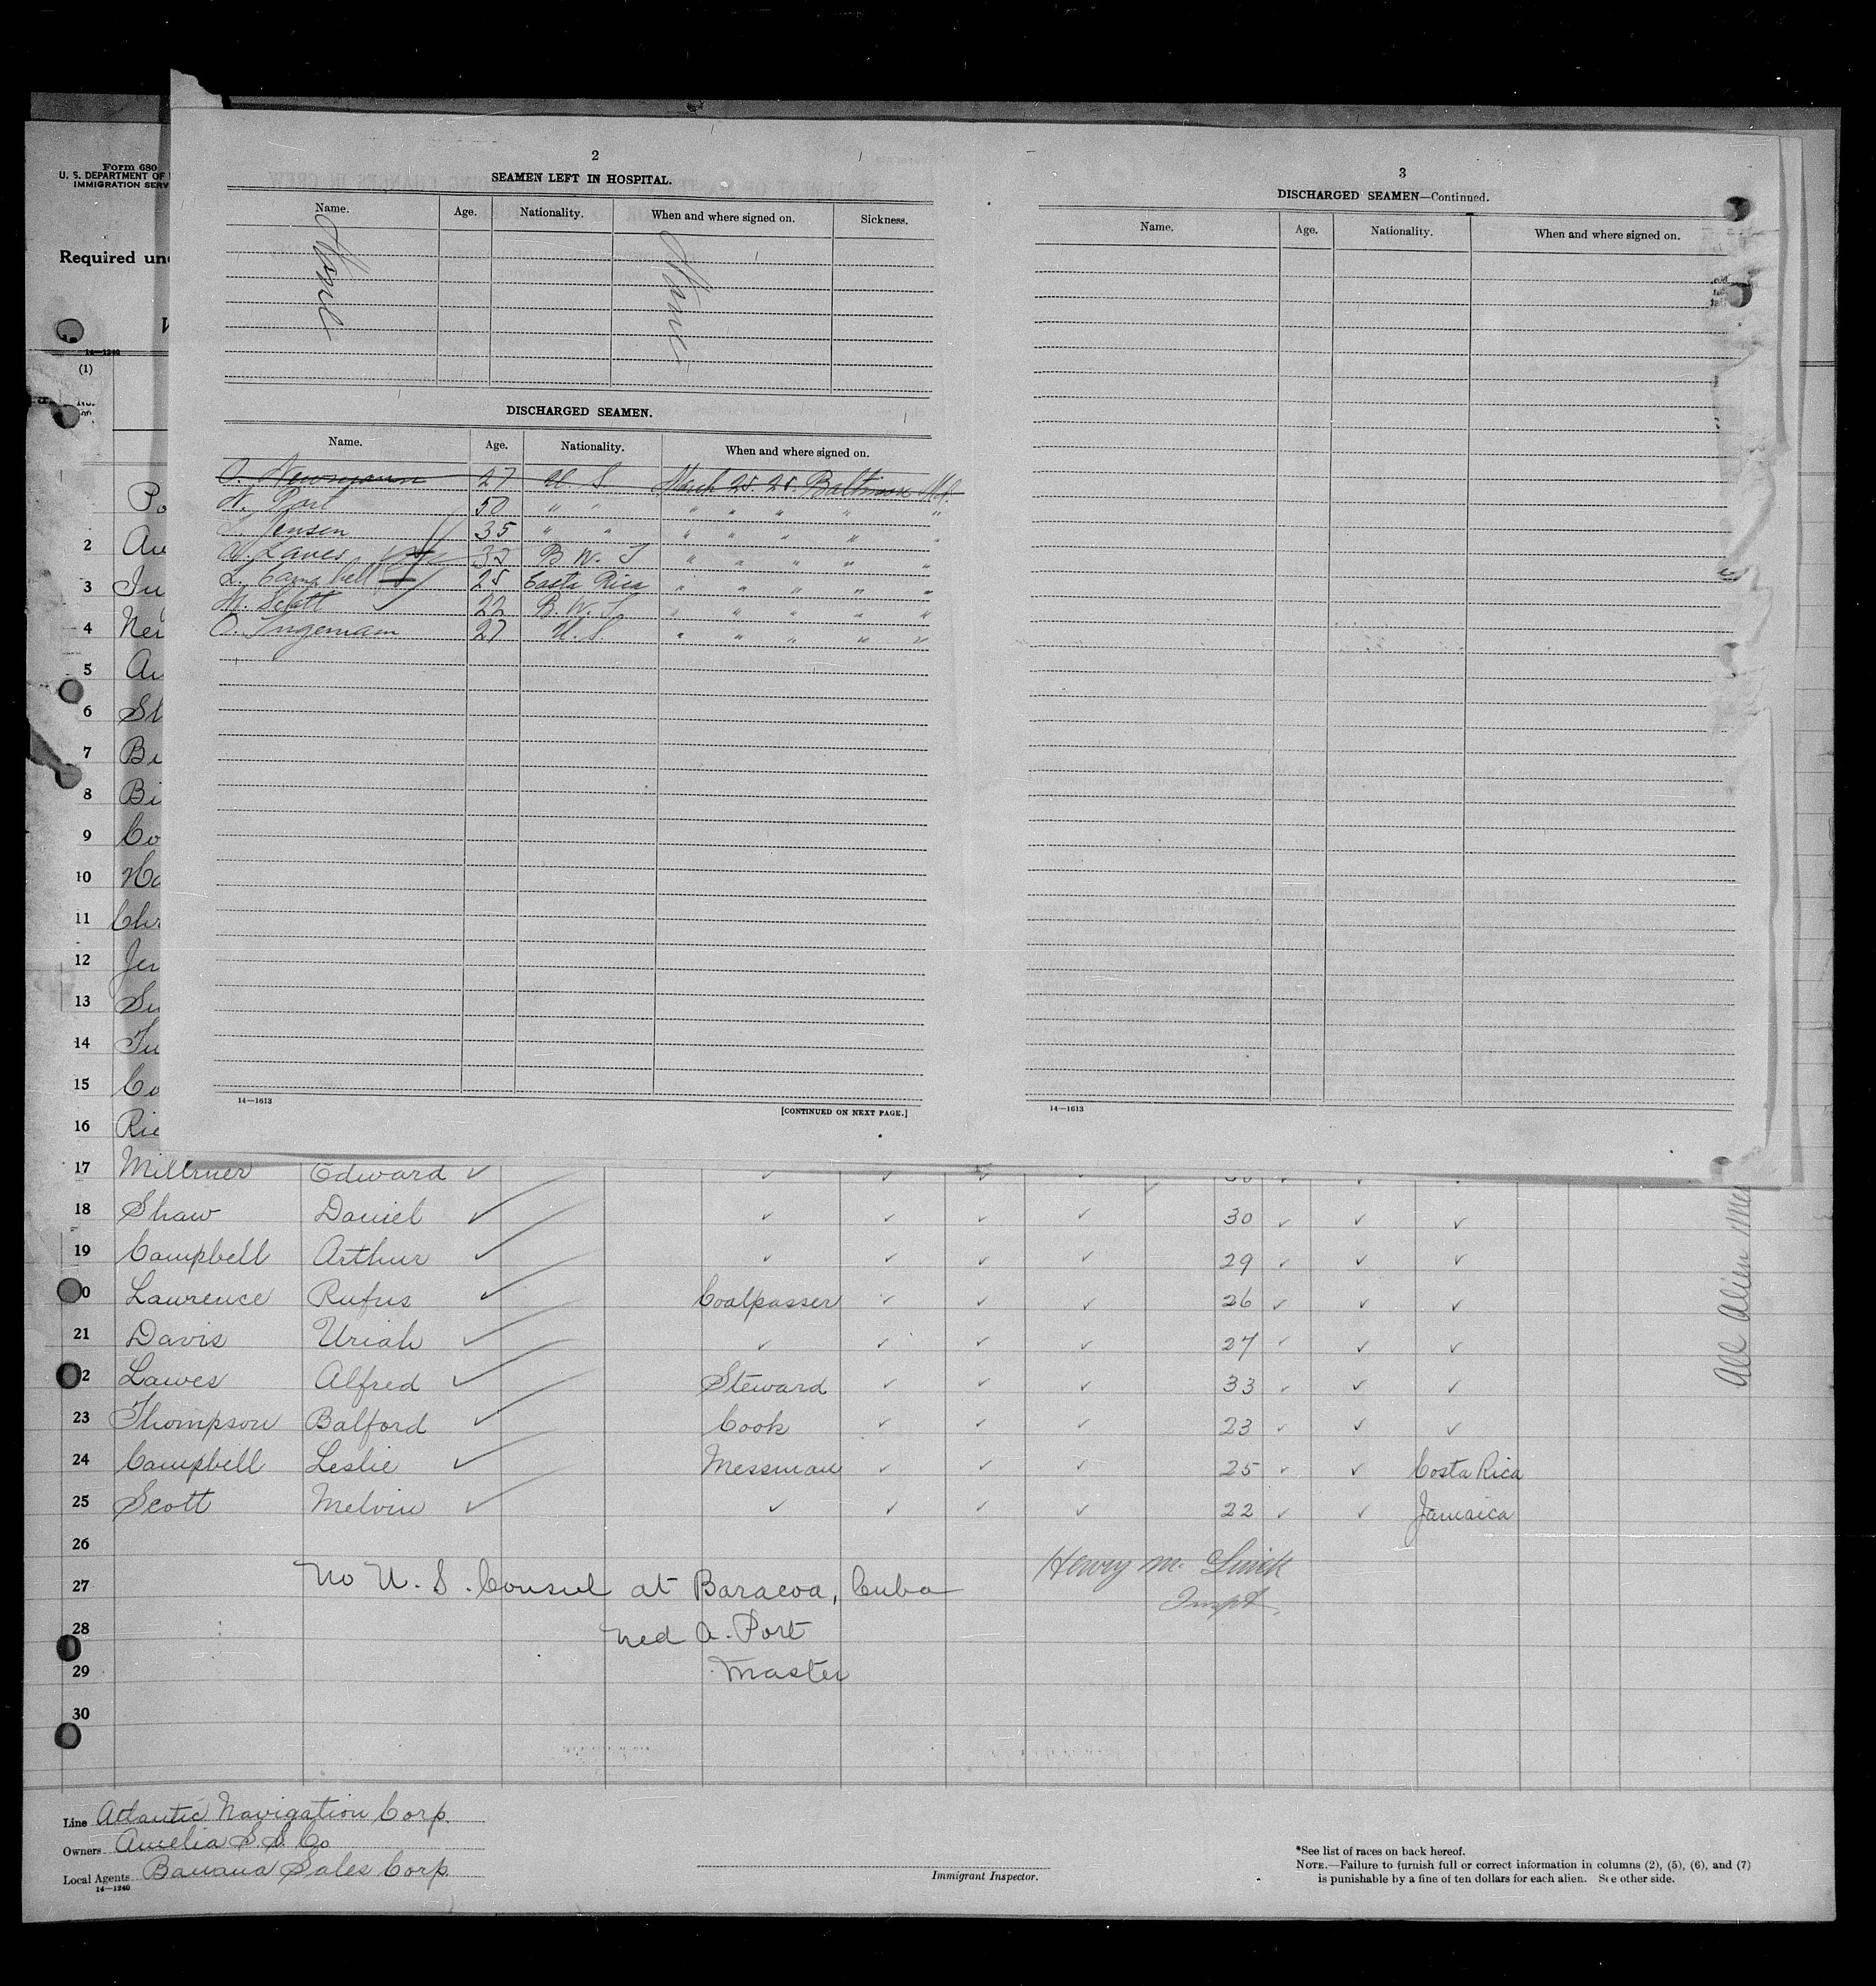 Form 680
U. S. DEPARTMENT OF
IMMIGRATION SERV
Required un
14—1240
(1)
No.
2
SEAMEN LEFT IN HOSPITAL.
Name. Age. Nationality. When and where signed on. Sickness.
None None
DISCHARGED SEAMEN.
Name. Age. Nationality. When and where signed on.
O. Newmann 27 U S March 25. 25. Baltimore Md.
N. Port 50 " " " " " " "
Jensen 35 " " " " " " "
A. Lawes 32 B W. I " " " " "
L. Campbell 25 Costa Rica " " " " "
M. Scott 22 B. W. I " " " " "
O. Ingemann 27 U. S " " " " "
14—1613
[CONTINUED ON NEXT PAGE.]
3
DISCHARGED SEAMEN—Continued.
Name. Age. Nationality. When and where signed on.
14—1613
Po
2 Au
3 Ju
4 Ner
5 Au
6 St
7 Be
8 Bi
9 Co
10 Ha
11 Chr
12 Jen
13 Su
14 Fu
15 Co
16 Ric
17 Millmer Edward ✓ ✓ ✓ ✓ ✓ ✓ ✓ ✓
18 Shaw Daniel ✓ ✓ ✓ ✓ ✓ 30 ✓ ✓ ✓
19 Campbell Arthur ✓ ✓ ✓ ✓ ✓ 29 ✓ ✓ ✓
0 Lawrence Rufus ✓ Coalpasser ✓ ✓ ✓ 26 ✓ ✓ ✓
21 Davis Uriah ✓ ✓ ✓ ✓ ✓ 27 ✓ ✓ ✓
2 Lawes Alfred ✓ Steward ✓ ✓ ✓ 33 ✓ ✓ ✓
23 Thompson Balford ✓ Cook ✓ ✓ ✓ 23 ✓ ✓ ✓
24 Campbell Leslie ✓ Messman ✓ ✓ ✓ 25 ✓ ✓ Costa Rica
25 Scott Melvin ✓ ✓ ✓ ✓ ✓ 22 ✓ ✓ Jamaica
26
27 No U. S. Consul at Baracoa, Cuba
Henry M.
Inspt.
28 Ned A. Port
29 Master
30
All Alien
Line Atlantic Navigation Corp.
Owners Amelia S. S. Co
Local Agents Banana Sales Corp.
14—1240
Immigrant Inspector.
*See list of races on back hereof.
NOTE.—Failure to furnish full or correct information in columns (2), (5), (6), and (7)
is punishable by a fine of ten dollars for each alien. See other side.